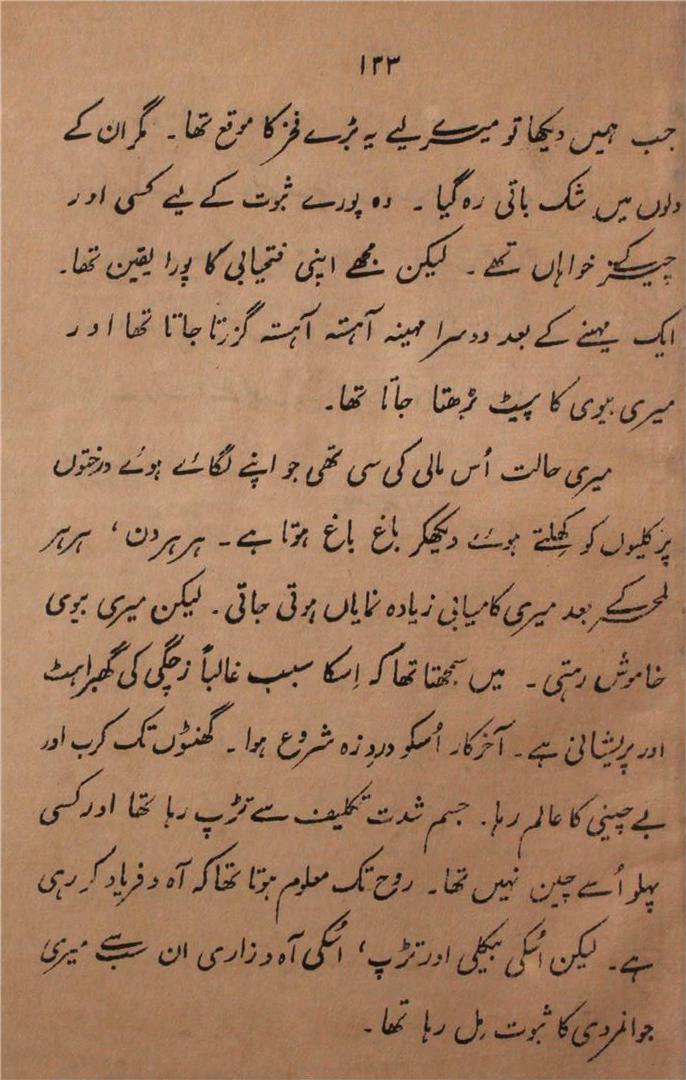 ۱۳۳
جب ہمیں دیکھا تو میرے لیے یہ بڑے فخر کا موقع تھا۔ مگر ان کے
دلوں میں شک باقی رہ گیا۔ وہ پورے ثبوت کے لیے کسی اور
چیز کے خواہاں تھے۔ لیکن مجھے اپنی فتحیابی کا پورا یقین تھا۔
ایک مہینے کے بعد دوسرا مہینہ آہستہ آہستہ گزرتا جاتا تھا اور
میری بیوی کا پیٹ بڑھتا جاتا تھا۔
میری حالت اُس مالی کی سی تھی جو اپنے لگائے ہوئے درختوں
پر کلیوں کو کھِلتے ہوئے دیکھکر باغ باغ ہوتا ہے۔ ہر ہر دن، ہر ہر
لمحے کے بعد میری کامیابی زیادہ نمایاں ہوتی جاتی۔ لیکن میری بیوی
خاموش رہتی۔ میں سمجھتا تھا کہ اِسکا سبب غالباً زچگی کی گھبراہٹ
اور پریشانی ہے۔ آخرکار اُسکو دردِ زہ شروع ہوا۔ گھنٹوں تک کرب اور
بے چینی کا عالم رہا۔ جسم شدت تکلیف سے تڑپ رہا تھا اور کسی
پہلو اُسے چین نہیں تھا۔ روح تک معلوم ہوتا تھا کہ آہ و فریاد کر رہی
ہے۔ لیکن اُسکی بیکلی اور تڑپ، اُسکی آہ و زاری ان سب سے میری
جوانمردی کا ثبوت مِل رہا تھا۔